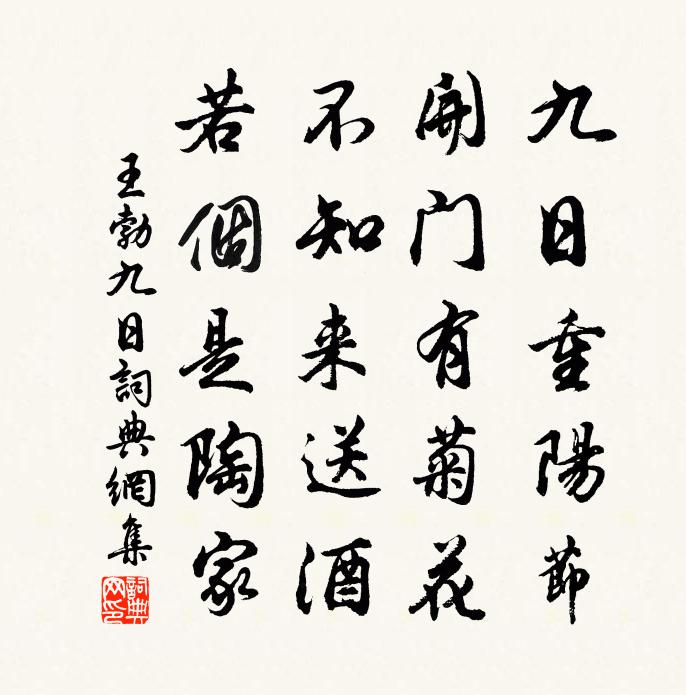 九日重陽節
開门有菊花
不知来送酒
若個是陶家
王勃九日詞典網集
詞典网印